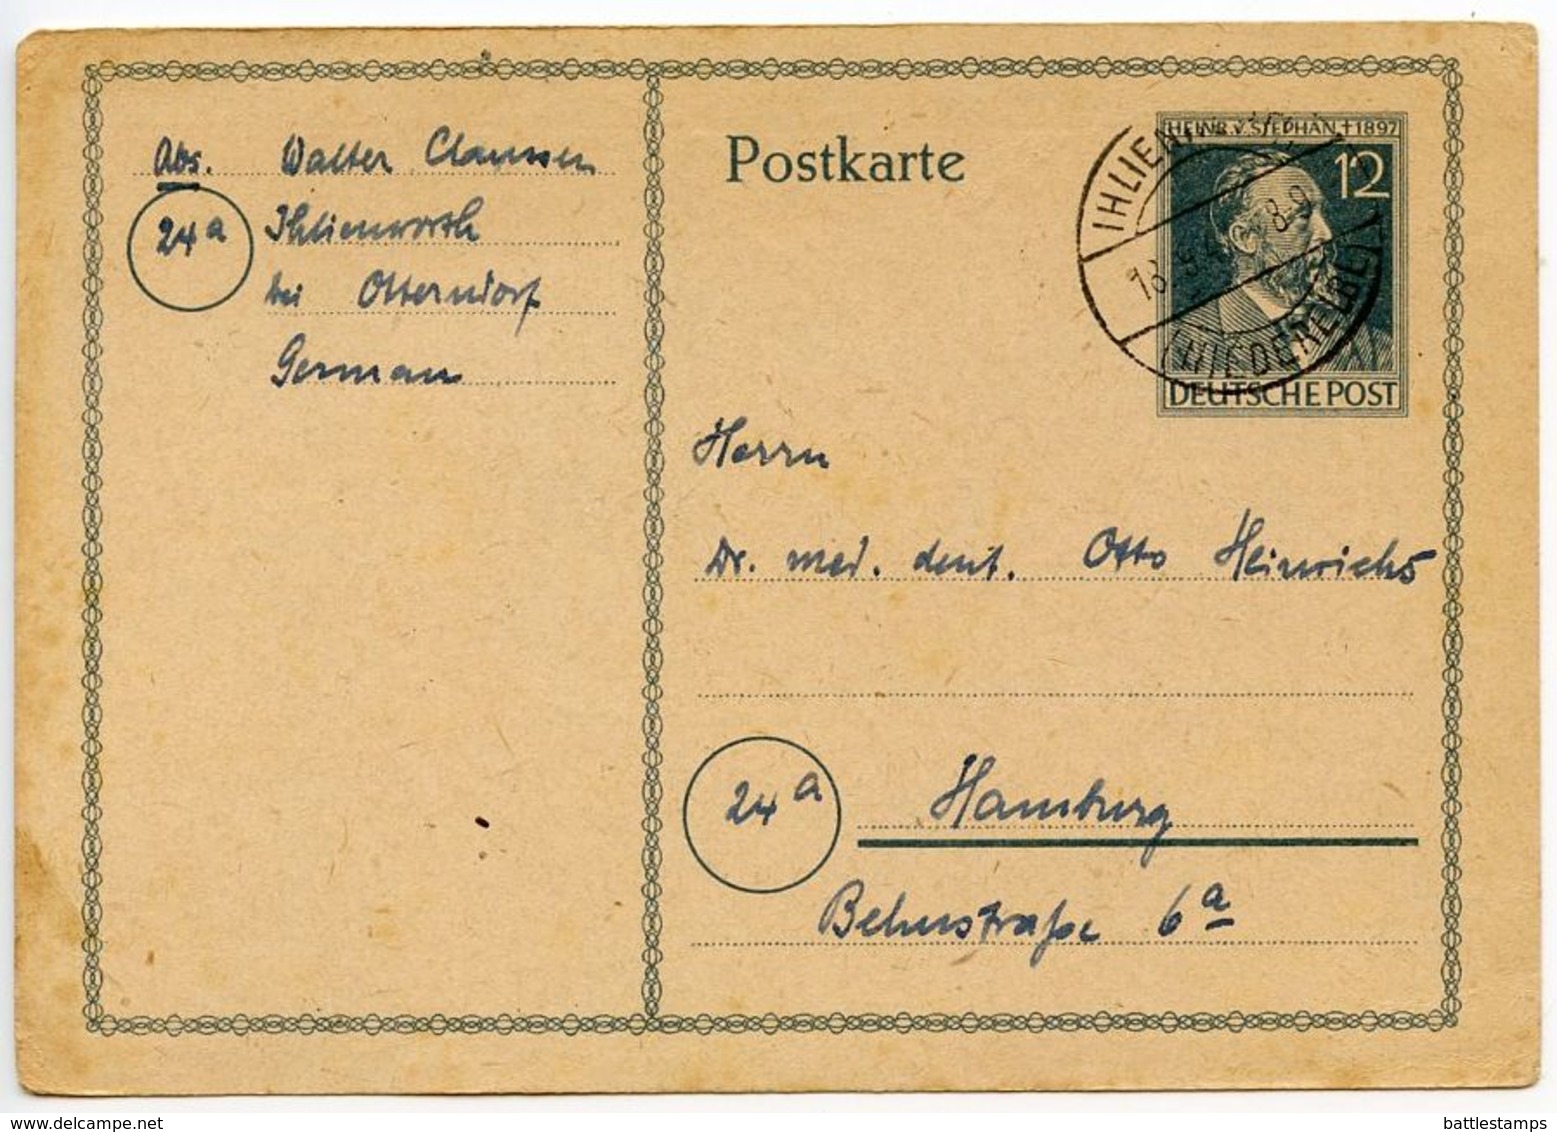 Abs. Walter Claussen
24a Ihlienworth
bei Otterndorf
German
Postkarte
HEINR.V.STEPHAN.+1897
12
DEUTSCHE POST
IHLIENWORTH
8-9
(NIEDERELBE)
Herrn
Dr. med. dent. Otto Heinrichs
24a Hamburg
Behnstraße 6a
delcampe.net
battlestamps